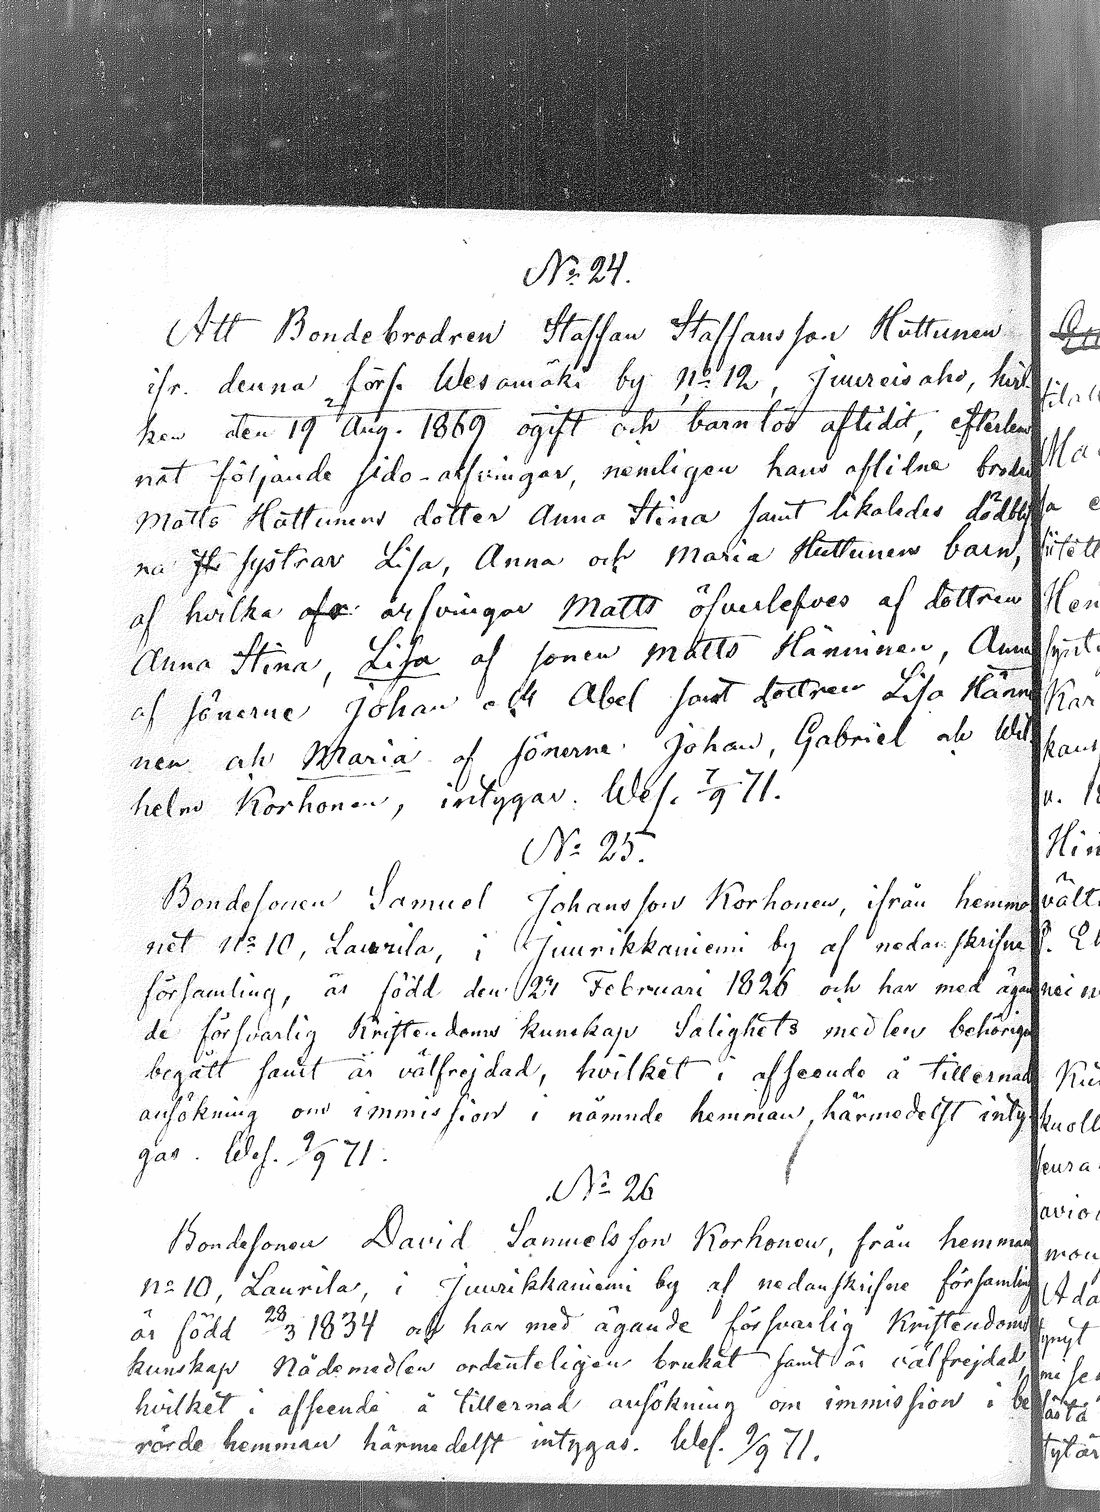 No 24.
Att Bondebrodren Staffan Staffansson Huttunen
ifr. denna förs. Wesamäki by no 12, Juureisaho, hvil-
ken den 19 Aug. 1869 ogift och barnlös aflidit, efterlem
nat följande sido-arfvingar, nemligen hans aflidne broder
Matts Huttunens dotter Anna Stina samt likaledes dödbli
na systrar Lisa, Anna och Maria Huttunens barn,
af hvilka arfvingar Matts öfverlefves af dottren
Anna Stina, Lisa af sonen Matts Hänninen, Anna
af sönerne Johan och Abel samt dottren Lisa Hänni
nen och Maria af sönerne Johan, Gabriel och Wil-
helm Korhonen, intygar. Wes. 7/9 71.
No 25.
Bondesonen Samuel Johansson Korhonen, ifrån hemma
net no 10, Laurila, i Juurikkaniemi by af nedanskrifne
församling, är född den Februari 1826 och har med ägan
de försvarlig Kristendoms kunskap Salighets medlen behörigen
begått samt är välfrejdad, hvilket i afseende å tillernad
ansökning om immission i nämnde hemman, härmedelst inty-
gas. Wes. 9/9 71.
No 26
Bondesonen David Samuelsson Korhonen, från hemman
no 10, Laurila, i Juurikkaniemi by af nedanskrifne församling
är född 28/3 1834 och har med ägande försvarlig Kristendoms
kunskap Nådemedlen ordenteligen brukat samt är välfrejdad,
hvilket i afseende å tillernad ansökning om immission i be
rörde hemman härmedelst intygas. Wes. 9/9 71.